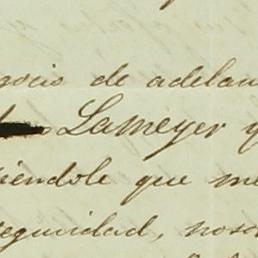 gocio de adelan
Lameyer y
iéndole que me
seguridad, noso